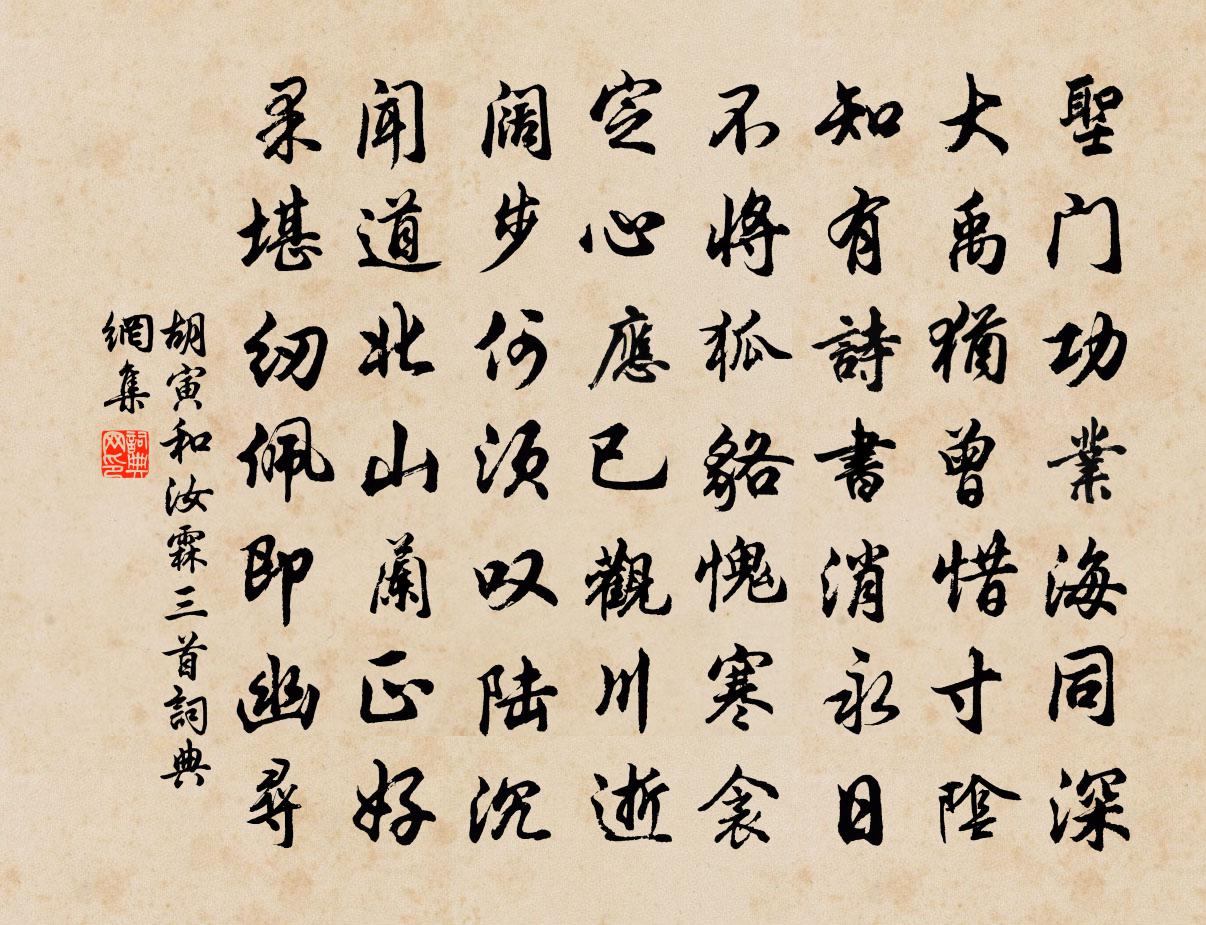 聖门功業海同深
大禹猶曾惜寸陰
知有詩書消永日
不將狐貉愧寒衾
定心應已觀川逝
阔步何须叹陆沉
闻道北山蘭正好
采堪纫佩即幽尋
胡寅和汝霖三首詞典
網集
詞典
网印